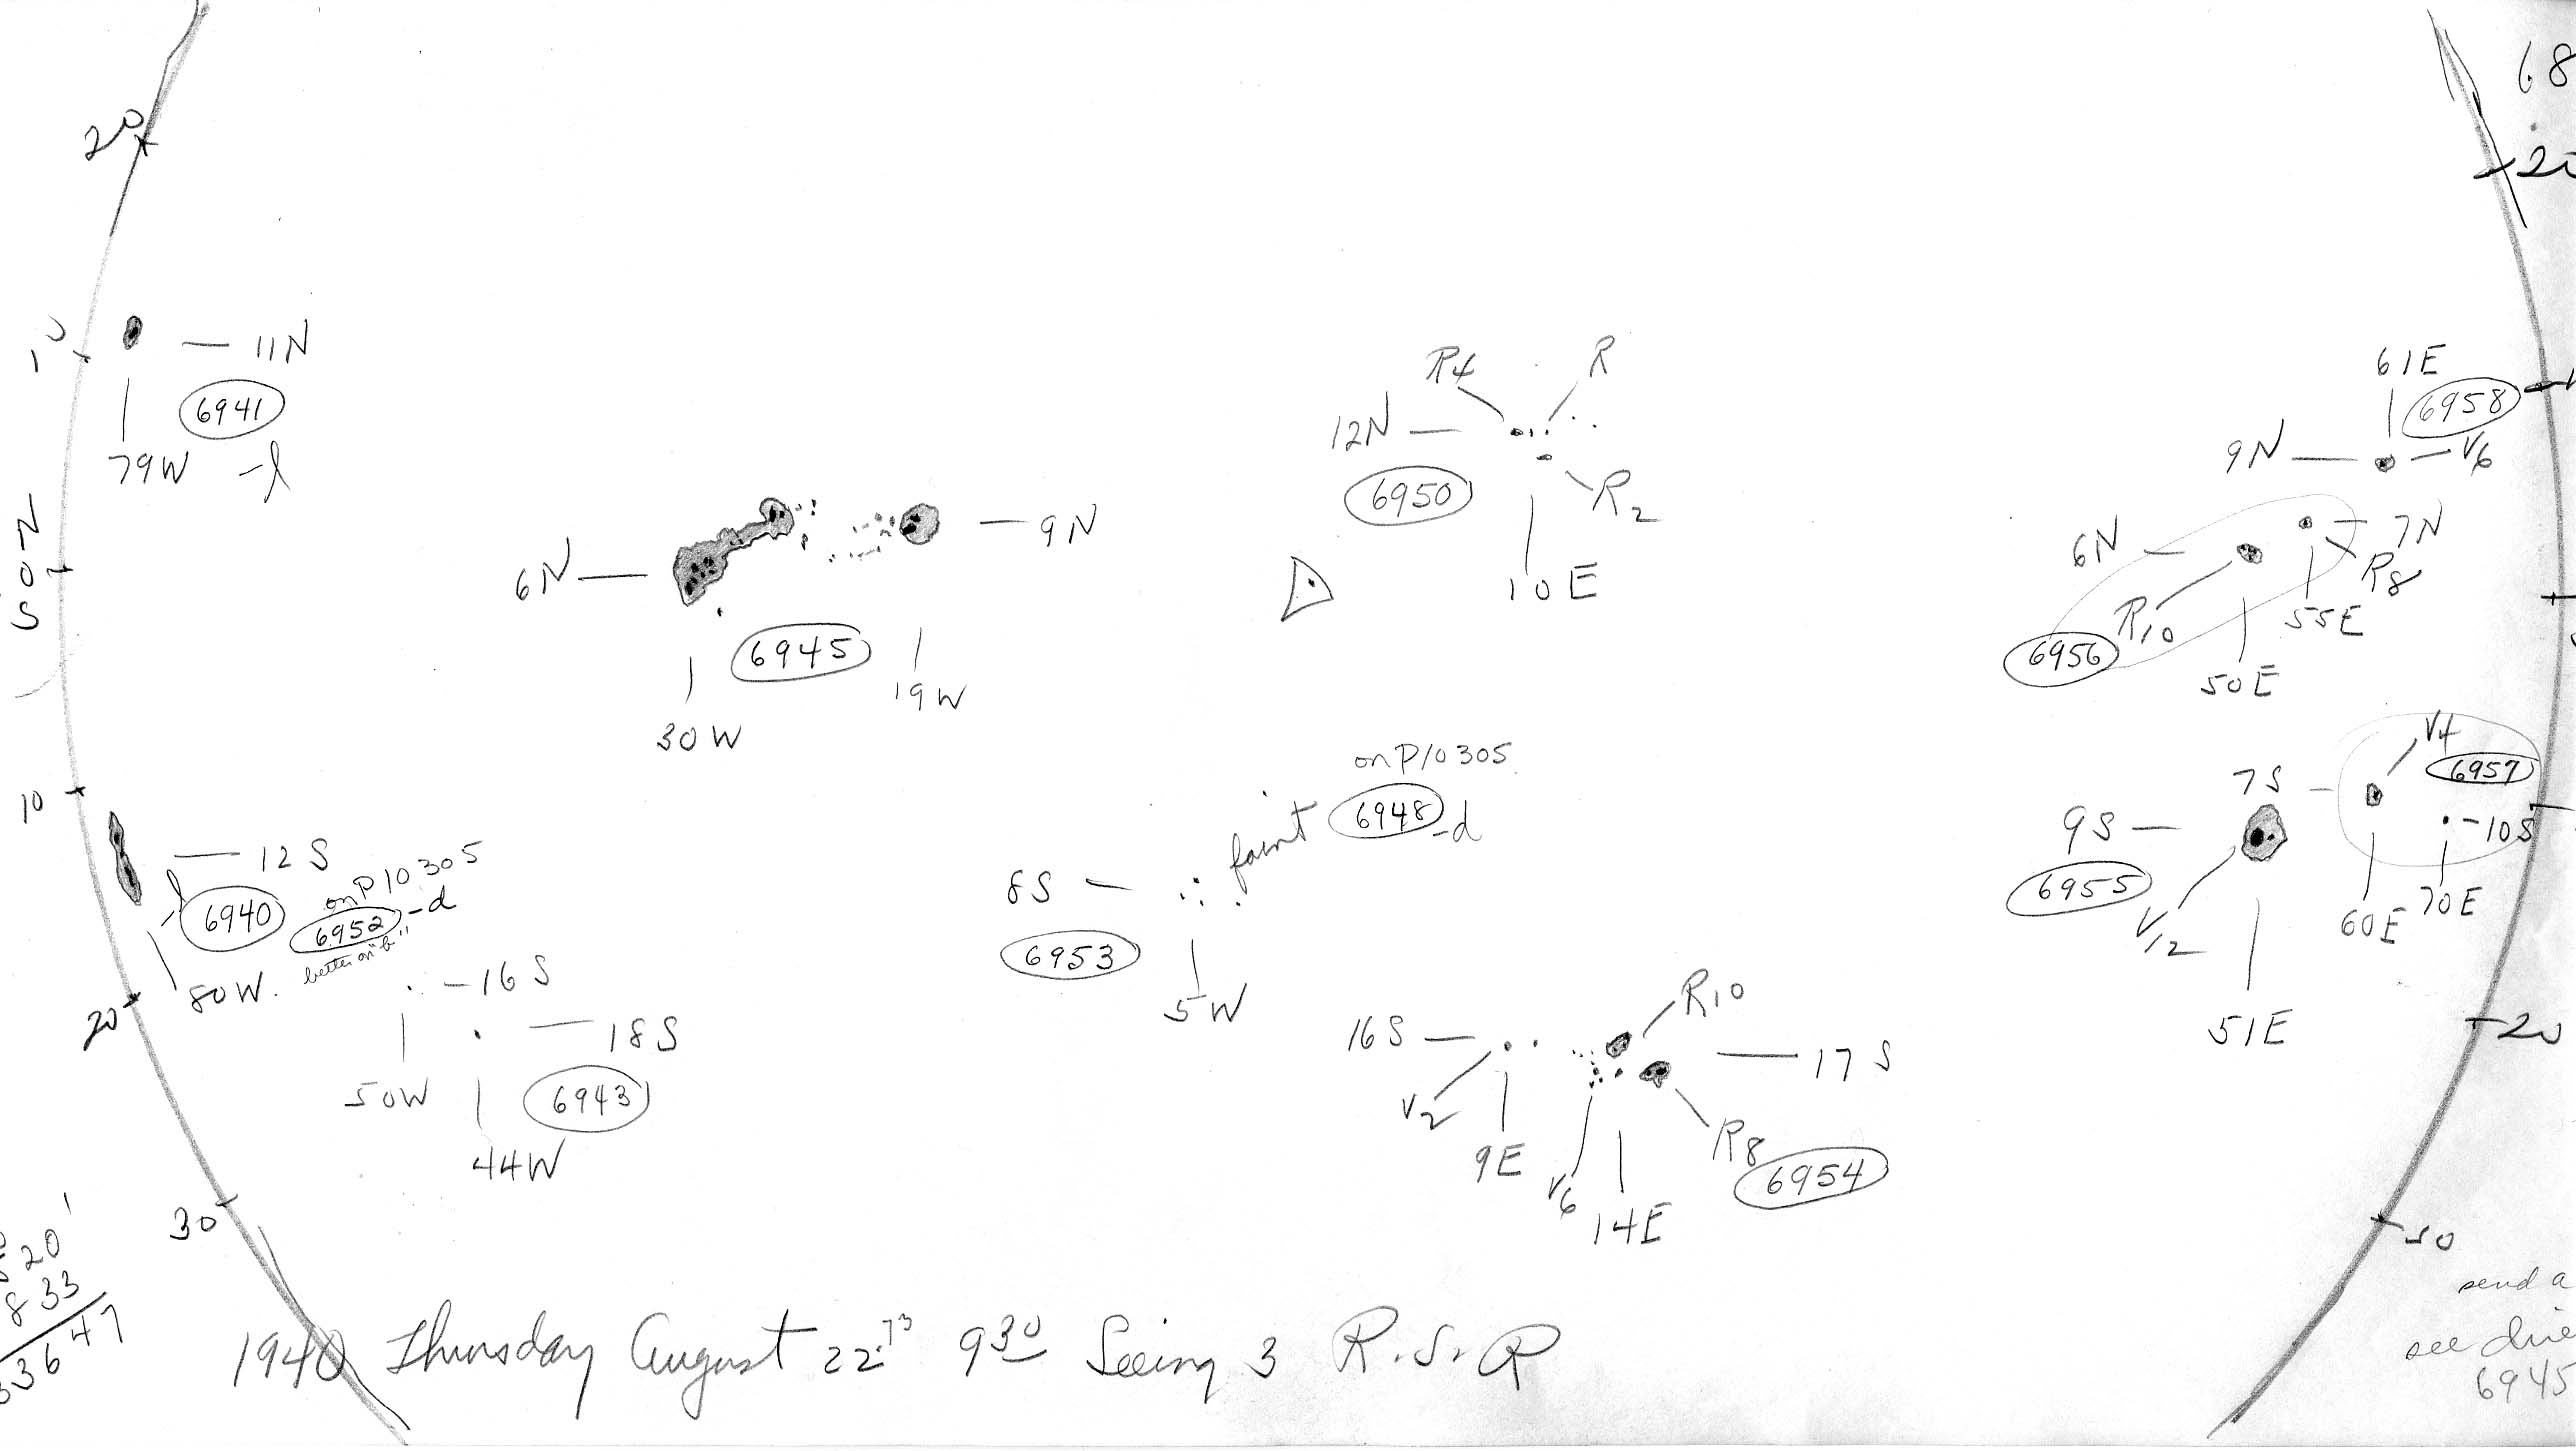 20
10
11N
6941
79W -l
50N
10
12S
-l
6940
on P10305
6952 -d
better on "b"
80W.
20
-16S
50W
18S
6943
44W
30
20
8 33
33647
6N
9N
6945
30W
19W
R4
R
12N
6950
R2
10E
on P10305
faint
6948 -d
8S
6953
5W
16S
R10
17S
V2
9E
V6
14E
R8
6954
68
20
61E
6958
9N
V6
6N
7N
R8
R10
55E
6956
50E
V4
6957
7S
9S
-10S
6955
V12
60E
70E
51E
20
30
send a
see
6945
1940 Thursday August 22.73 930 Seeing 3 R.S.R